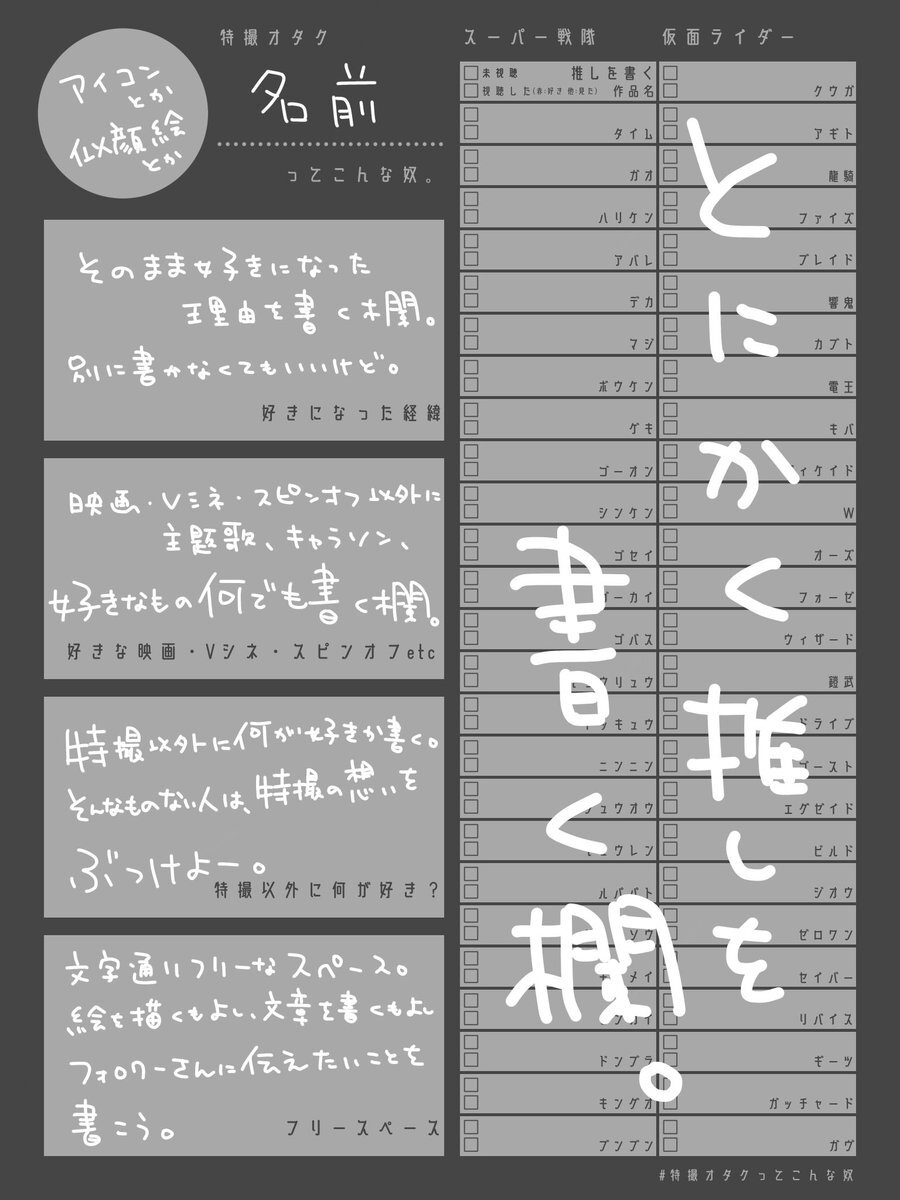 特撮オタク
アイコン
とか
似顔絵
とか
名前
っとこんな奴。
そのまま好きになった
理由を書く欄。
別に書かなくてもいいけど。
好きになった経緯
映画・Vシネ・スピンオフ以外に
主題歌、キャラソン、
好きなもの何でも書く欄。
好きな映画・Vシネ・スピンオフetc
特撮以外に何が好きか書く。
そんなものない人は、特撮の想いを
ぶつけよー。
特撮以外に何が好き?
文字通りフリーなスペース。
絵を描くもよし、文章を書くもよし
フォロワーさんに伝えたいことを
書こう。
フリースペース
スーパー戦隊
未視聴 推しを書く
視聴した(赤:好き 他:見た) 作品名
タイム
ガオ
ハリケン
アバレ
デカ
マジ
ボウケン
ゲキ
ゴーオン
シンケン
ゴセイ
ゴーカイ
ゴバス
リュウ
キュウ
ニンニン
ュウオウ
ュウレン
ルパパト
ソウ
メイ
ドンブラ
キングオ
ブンブン
仮面ライダー
クウガ
アギト
龍騎
ファイズ
ブレイド
響鬼
カブト
電王
キバ
ィケイド
W
オーズ
フォーゼ
ウィザード
鎧武
ドライブ
ゴースト
エグゼイド
ビルド
ジオウ
ゼロワン
セイバー
リバイス
ギーツ
ガッチャード
ガヴ
とにかく推しを
書く欄。
#特撮オタクっとこんな奴